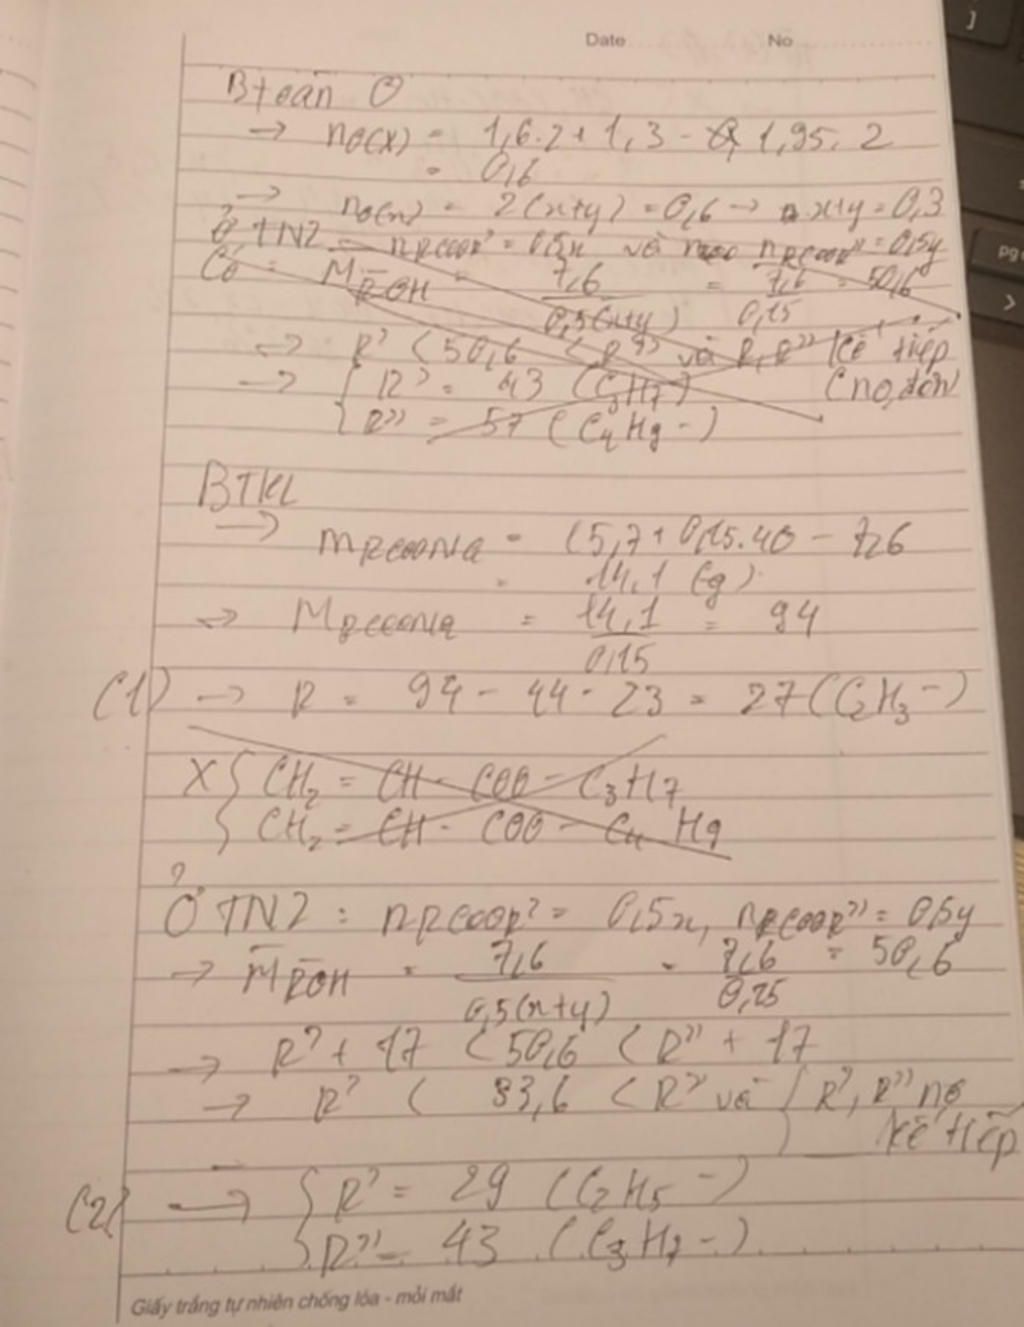 Date No
Btoàn O
→ nO(X) = 1,6.2 + 1,3 - 1,95.2
= 0,6
→ nO(X) = 2(x+y) = 0,6 → x+y = 0,3
Ở TN2 nRCOOR' = 0,5x và nRCOOR'' = 0,5y
Có : M̅R̅OH = 7,6 / 0,5(x+y) = 7,6 / 0,15 = 50,6
→ R' < 50,6 < R'' và R', R'' kế tiếp
→ { R' = 43 (C3H7) (no, đơn)
{ R'' = 57 (C4H9-)
BTKL
→ mRCOONa = 15,7 + 0,15.40 - 7,6
= 14,1 (g).
→ MRCOONa = 14,1 / 0,15 = 94
(1) → R = 94 - 44 - 23 = 27 (C2H3-)
X { CH2 = CH - COO - C3H7
{ CH2 = CH - COO - C4H9
Ở TN2 : nRCOOR' = 0,5x, nRCOOR'' = 0,5y
→ M̅R̅OH = 7,6 / 0,5(x+y) = 7,6 / 0,15 = 50,6
→ R' + 17 < 50,6 < R'' + 17
→ R' < 33,6 < R'' và { R', R'' no
kế tiếp
(2) → { R' = 29 (C2H5-)
{ R'' = 43 (C3H7-)
Giấy trắng tự nhiên chống lóa - mỏi mắt